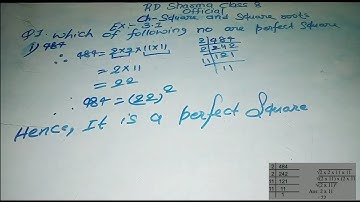 RD Sharma Class 8
Official
Ch-Square and Square roots
Ex:- 3.1
Q1. Which of following no are perfect Square
1) 484
2|484
2|242
11|121
11
484 = 2×2 × (11×11)
= 2×11
= 22
∴ 484 = (22)²
Hence, It is a perfect Square
2 484
2 242
11 121
11 11
1
√2 x 2 x 11 x 11
Ans: 2 x 11